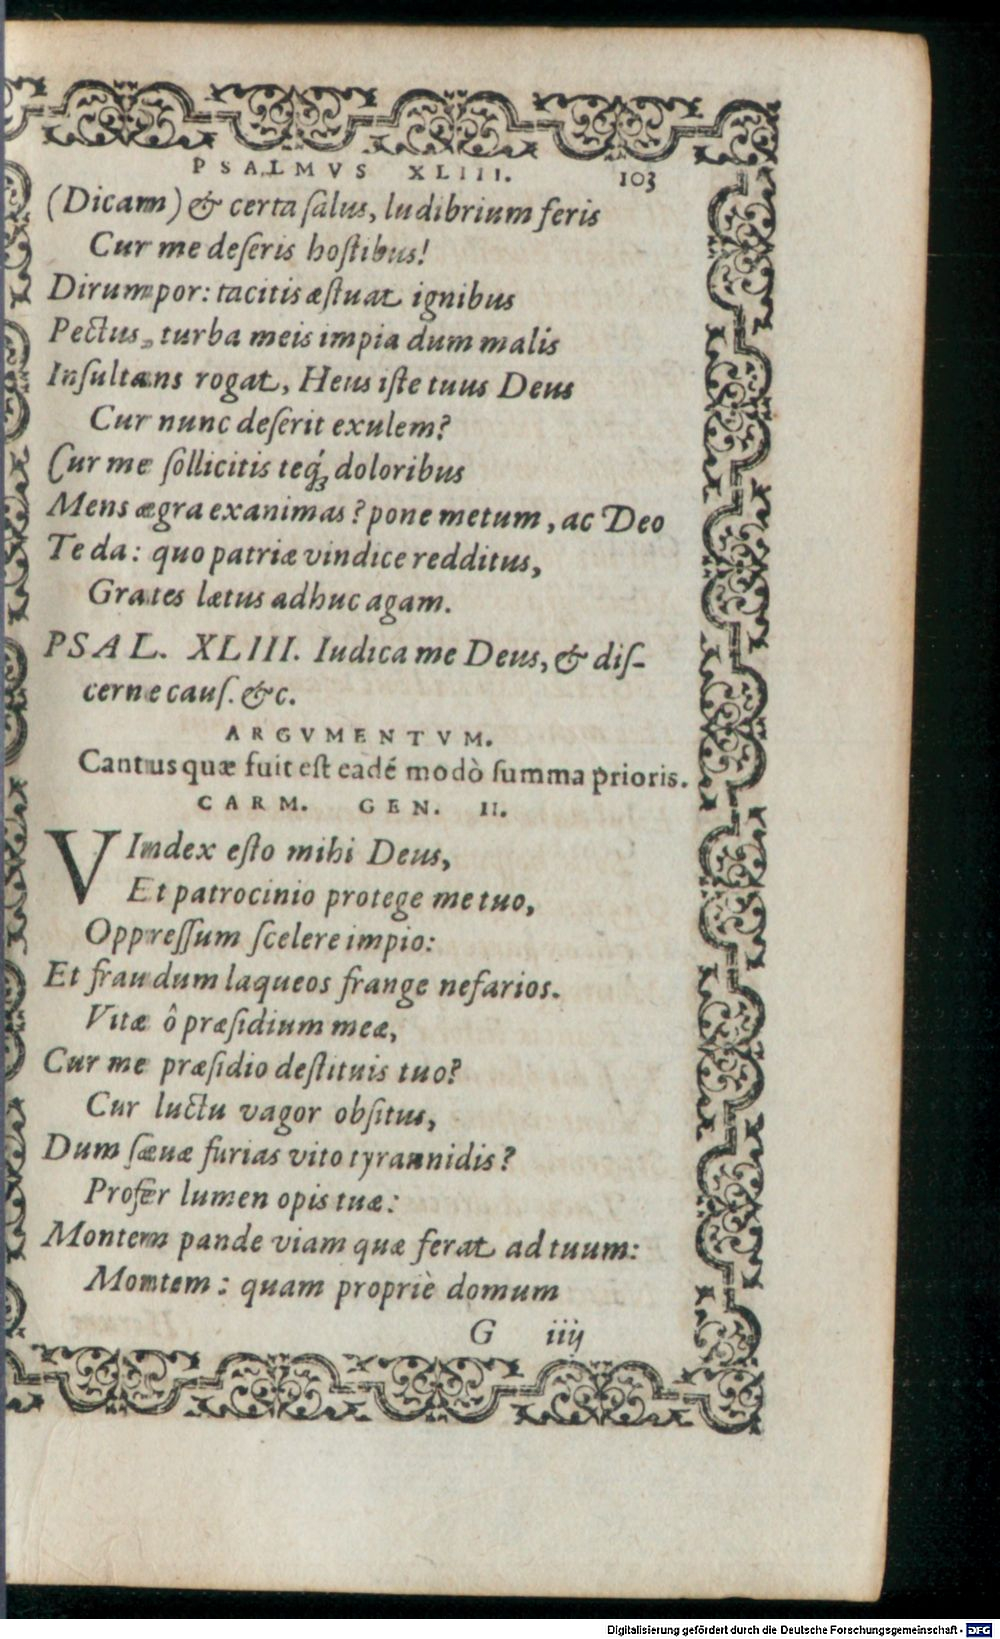 PSALMVS XLIII. 103
(Dicam) & certa ſalus, ludibrium feris
Cur me deſeris hoſtibus!
Dirumpor: tacitis æſtuat ignibus
Pectus, turba meis impia dum malis
Inſultans rogat, Heus iſte tuus Deus
Cur nunc deſerit exulem?
Cur me ſollicitis teq́ꝫ doloribus
Mens ægra exanimas? pone metum, ac Deo
Te da: quo patriæ vindice redditus,
Grates lætus adhuc agam.
PSAL. XLIII. Iudica me Deus, & diſ-
cerne cauſ. &c.
ARGVMENTVM.
Cantus quæ fuit eſt eadé modò ſumma prioris.
CARM. GEN. II.
VIndex eſto mihi Deus,
Et patrocinio protege me tuo,
Oppreſſum ſcelere impio:
Et fraudum laqueos frange nefarios.
Vitæ ô præſidium meæ,
Cur me præſidio deſtituis tuo?
Cur luctu vagor obſitus,
Dum ſæuæ furias vito tyrannidis?
Profer lumen opis tuæ:
Montem pande viam quæ ferat ad tuum:
Montem: quam propriè domum
G iiij
Digitalisierung gefördert durch die Deutsche Forschungsgemeinschaft - DFG